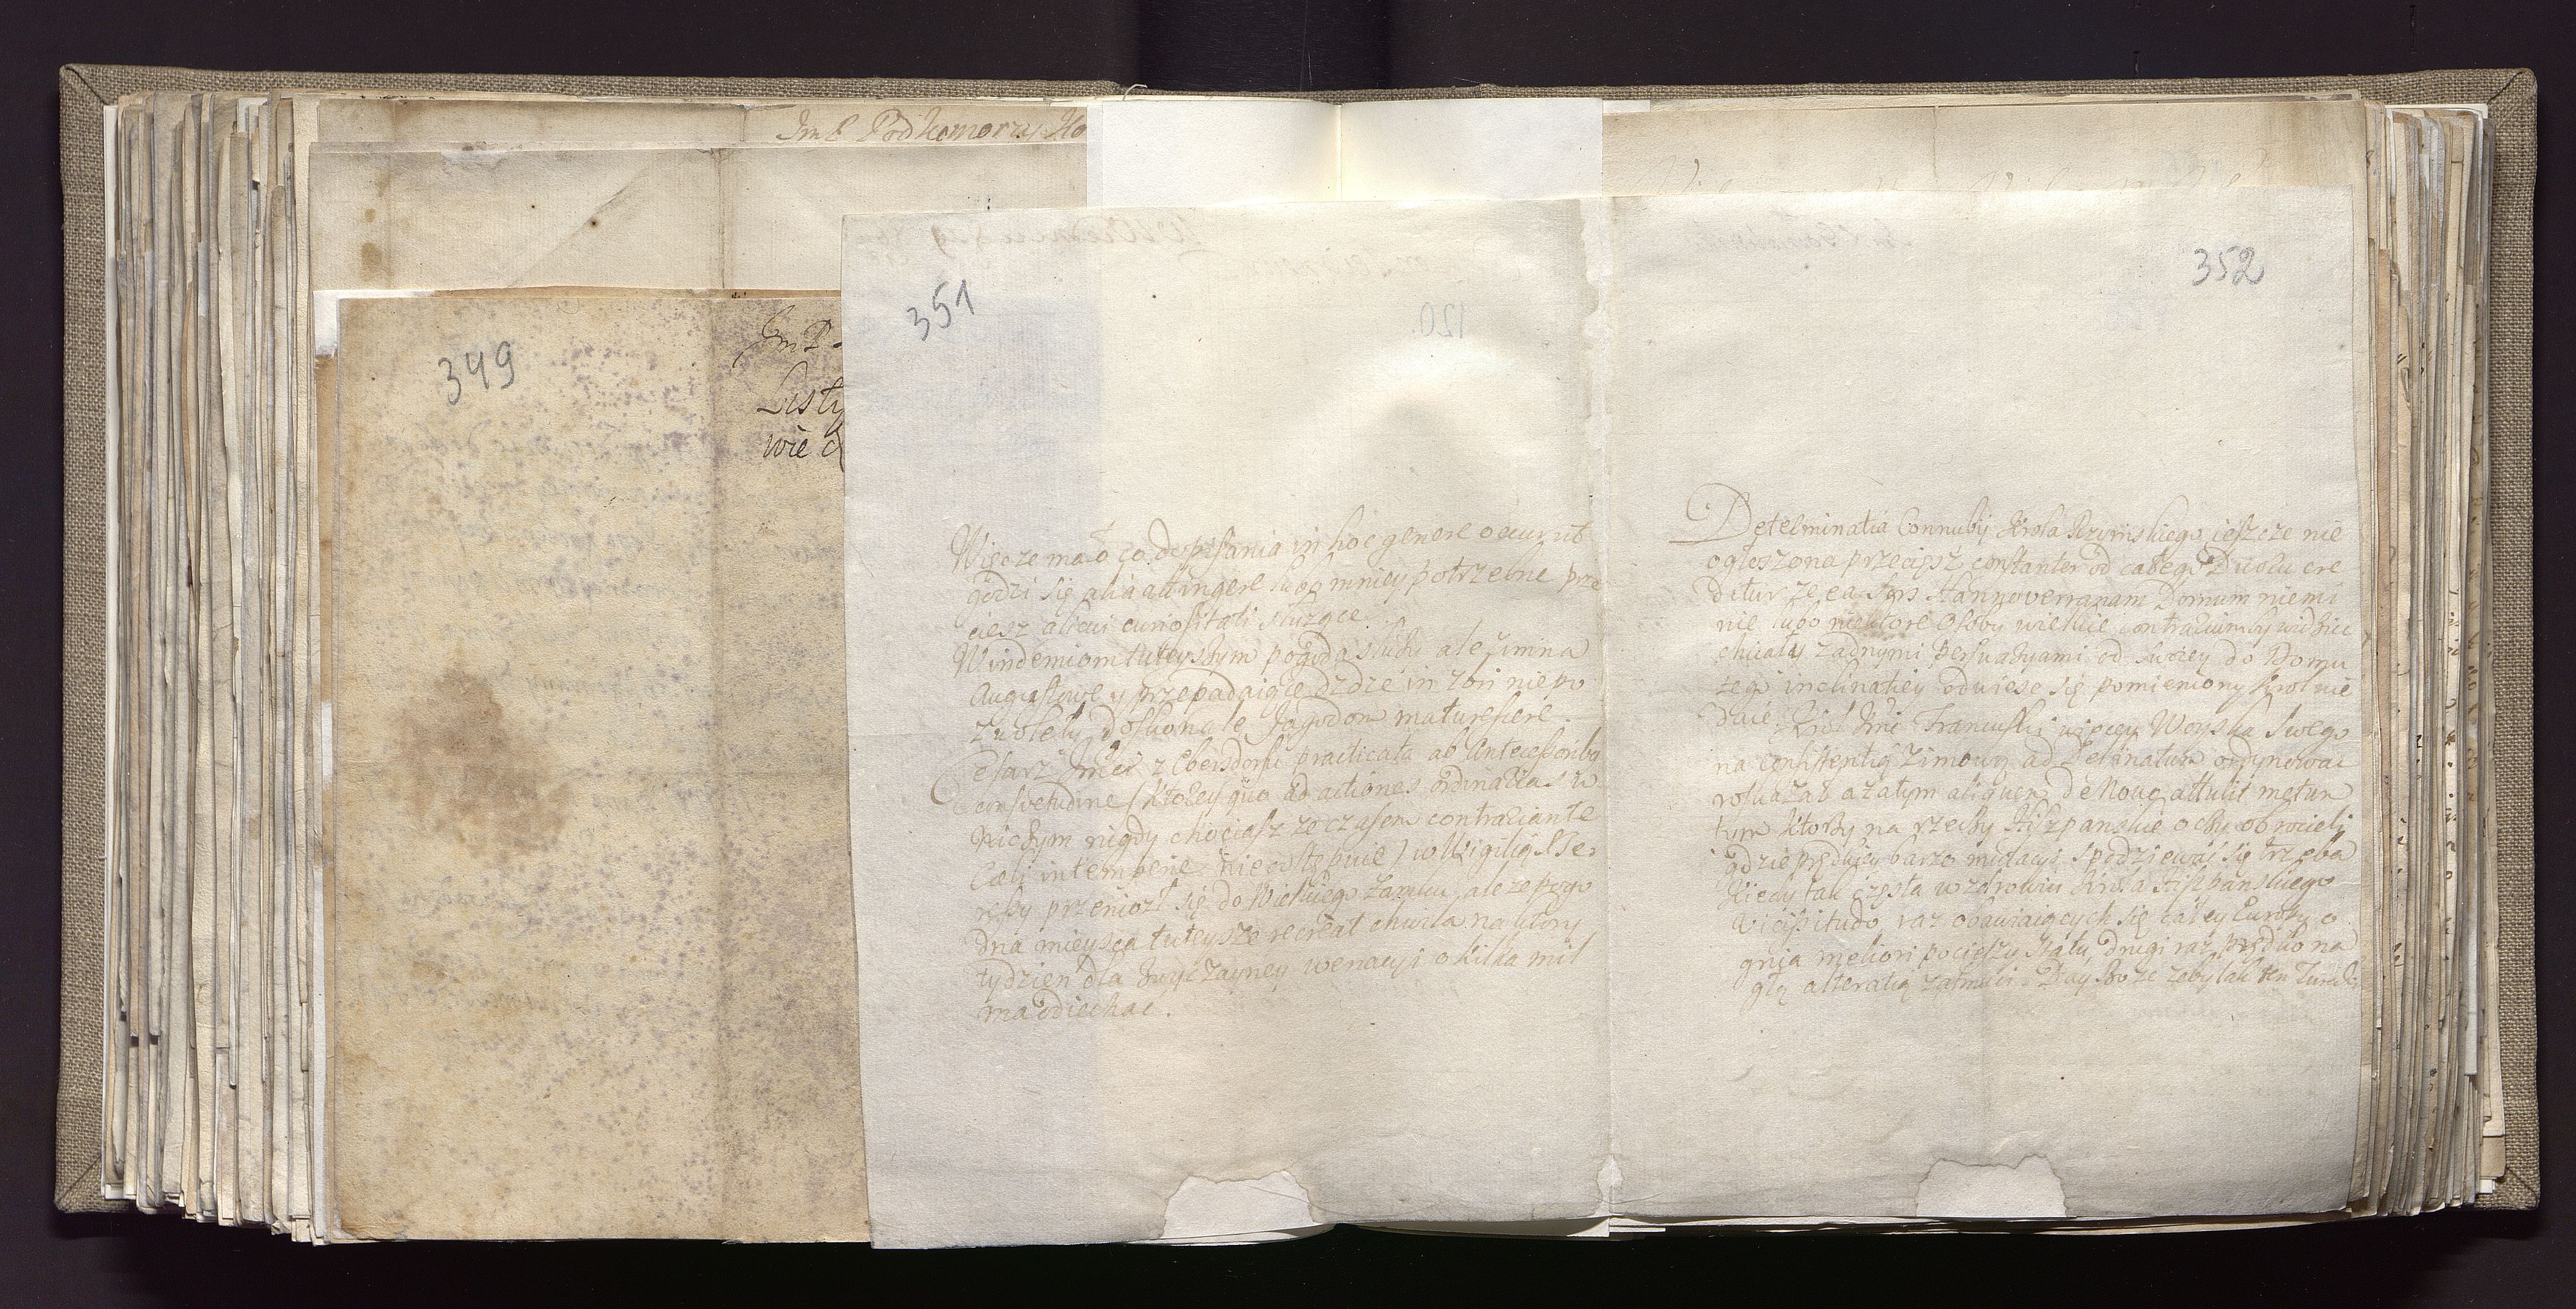 Im P Podkomorzy Ko
349
Im P.
Listy
wie
351
Więc ze mało co do pisania in hoc genere occurrit
godzi się alia attingere lubo mniey potrzebne prze
ciesz alicui curiositati służące.
Windemiom tuteyszym pogoda służy ale zimna
Augustowe y przepadaiące dżdże in zoń nie po
zwoleły doskonale Jagodom maturescere.
Cesarz Jmći z Ebersdorfu practicata ab Antecessoribꝫ
consvetudine (ktorey quo ad actiones ordinarias w
niczym nigdy chociasz ze czasem contrariante
Cæli intemperie nie odstępuie) w Wigilią S Te-
resy przeniozł się do Wiednia do Zamku, ale ze po
dna mieysca tuteysze recreat chwila na
tydzien dla zwyczayney wenacyi o kilka mil
ma odiechac.
352
Determinatia Connubij Krola Rzymskiego ieszcze nie
ogłoszona przeciesz constanter od całego Dworu cre
ditur ze ea sors Hannoveranam Domum nie mi
nie lubo niektore Osoby wielkie contrarium by widziec
chciały żadnymi perswazyami od swoiey do Domu
tego inclinatiey odwiesc się pomieniony Krol nie
daie. Krol Jmć Francuski więcey Woyska Swego
na consistentią zimową ad Delfinatum ordynowac
roskazał a zatym aliquem de Novo attulit metum
tym ktorzy na rzeczy Hiszpanskie oczy obrocieli
gdzie prędkiey barzo mutacyi spodziewac się trzeba
Kiedy tak częsta w zdrowiu Krola Hiszpanskiego
vicissitudo raz obawiaiących się całey Europy o
gnia meliori pocieszy statu, drugi raz prędko na
głą alteratią zatrwozi. Day Boze zeby tak ten